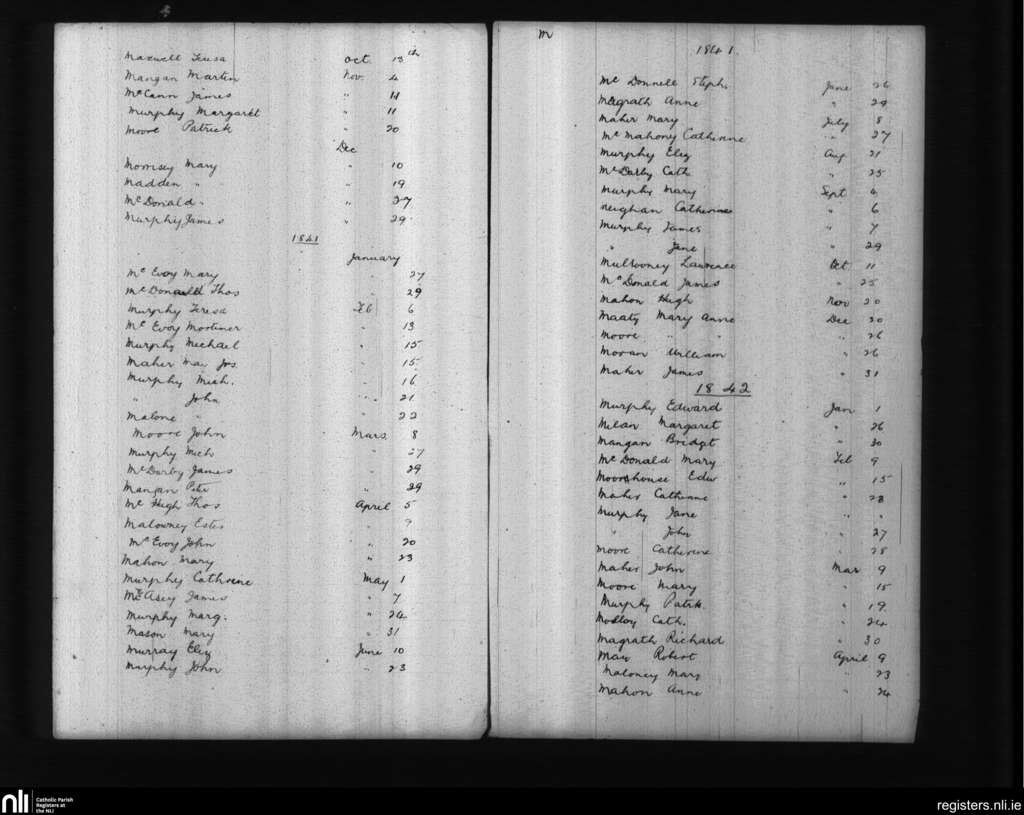 Maxwell Teresa Oct. 13th
Mangan Martin Nov. 4
McCann James " 11
Murphy Margaret " 11
Moore Patrick " 20
Dec
Morrisey Mary " 10
Madden " " 19
McDonald " " 27
Murphy James " 29
1841
January
Mc Evoy Mary " 27
McDonald Thos 29
Murphy Teresa Feb 6
Mc Evoy Mortimer " 13
Murphy Michael " 15
Maher Jos " 15
Murphy Mich. " 16
" John " 21
Malone " " 22
Moore John Mars 8
Murphy Mich " 27
McDarby James " 29
Mangan Peter " 29
Mc Hugh Thos April 5
Malowney Ester "
Mc Evoy John " 20
Mahon Mary " 23
Murphy Cathrine May 1
McAsey James " 7
Murphy Marg. " 24
Mason Mary " 31
Murray Eliz June 10
Murphy John " 23
M
1841.
Mc Donnell Steph. June 26
Megrath Anne " 29
Maher Mary July 8
Mc Mahony Catherine " 27
Murphy Eliz Aug 21
McDarby Cath " 25
Murphy Mary Sept 4
Meighan Catherine " 6
Murphy James " 7
" Jane " 29
Mulrooney Lawrence Oct 11
McDonald James " 25
Mahon Hugh Nov 20
Maaty Mary Anne Dec 30
Moore " " " 26
Moran William " 26
Maher James " 31
1842
Murphy Edward Jan 1
Milan Margaret " 26
Mangan Bridget " 30
Mc Donald Mary Feb 9
Moorehouse Edw " 15
Maher Catherine " 28
Murphy Jane " "
" John " 27
Moore Catherine " 28
Maher John Mar 9
Moore Mary " 15
Murphy Patrk. " 19
Molloy Cath. " 24
Magrath Richard " 30
May Robert April 9
Maloney Mary " 23
Mahon Anne " 24
nli
Catholic Parish
Registers at
the NLI
registers.nli.ie